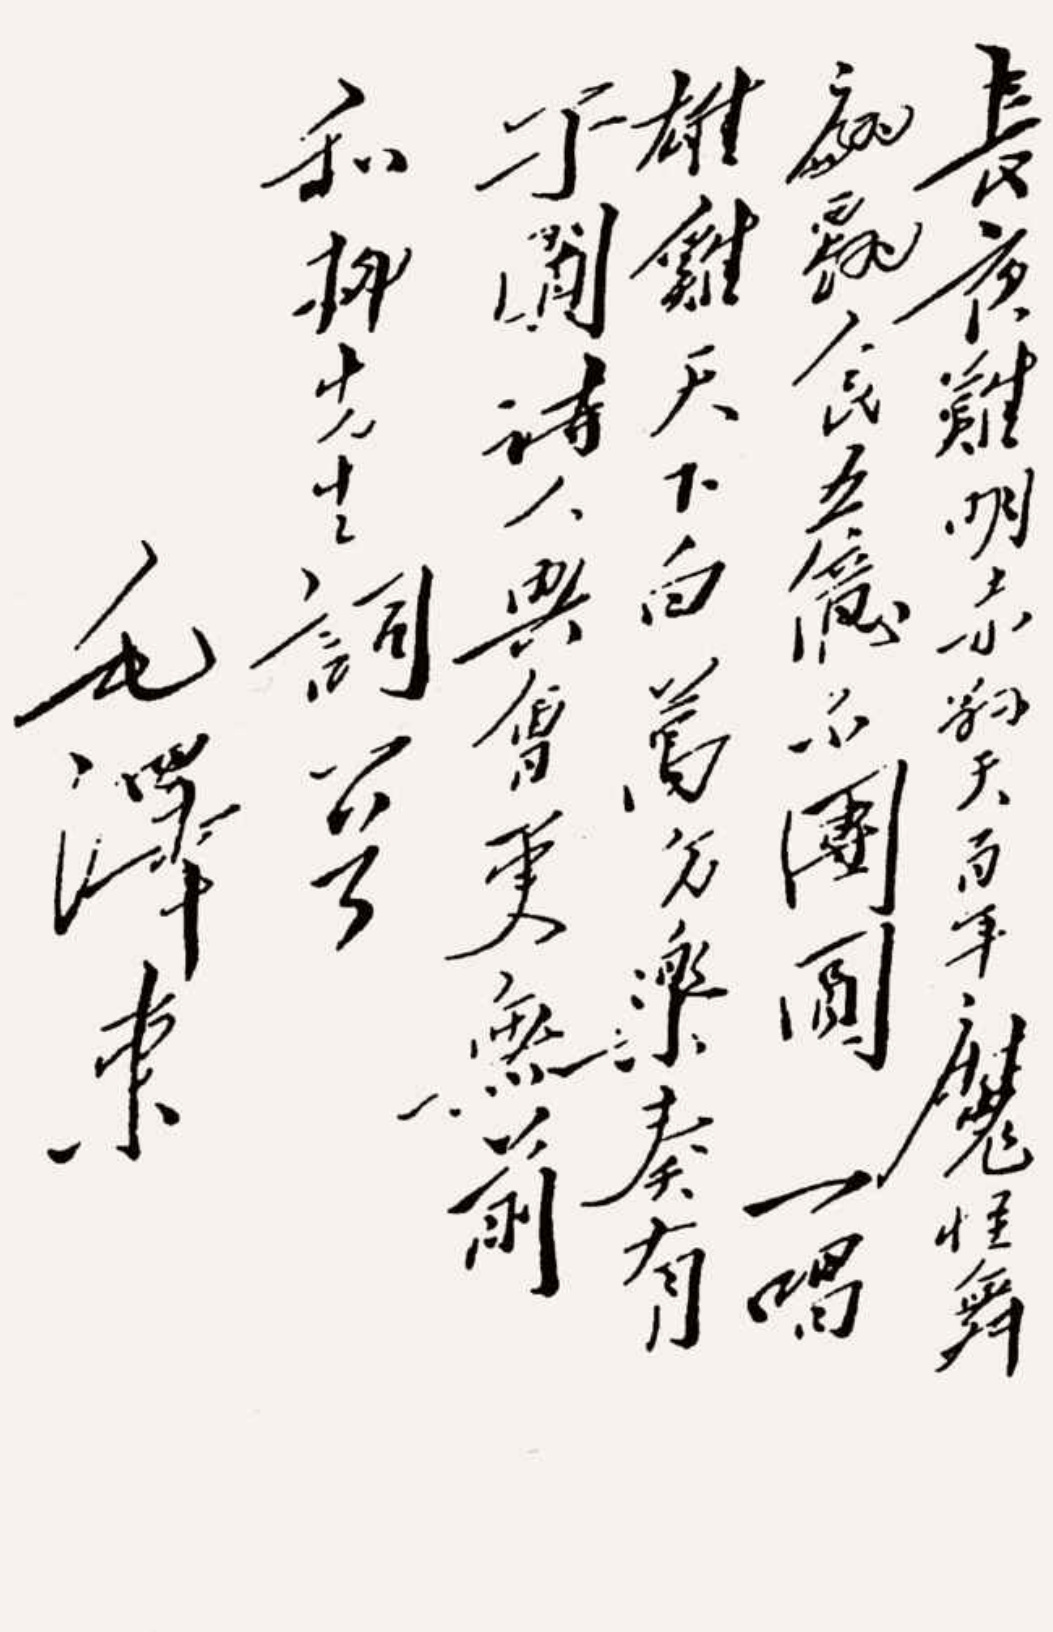 長夜難明赤縣天百年魔怪舞
翩躚人民五億不團圓 一唱
雄雞天下白萬方樂奏有
于闐詩人興會更無前
和柳先生詞
毛澤東